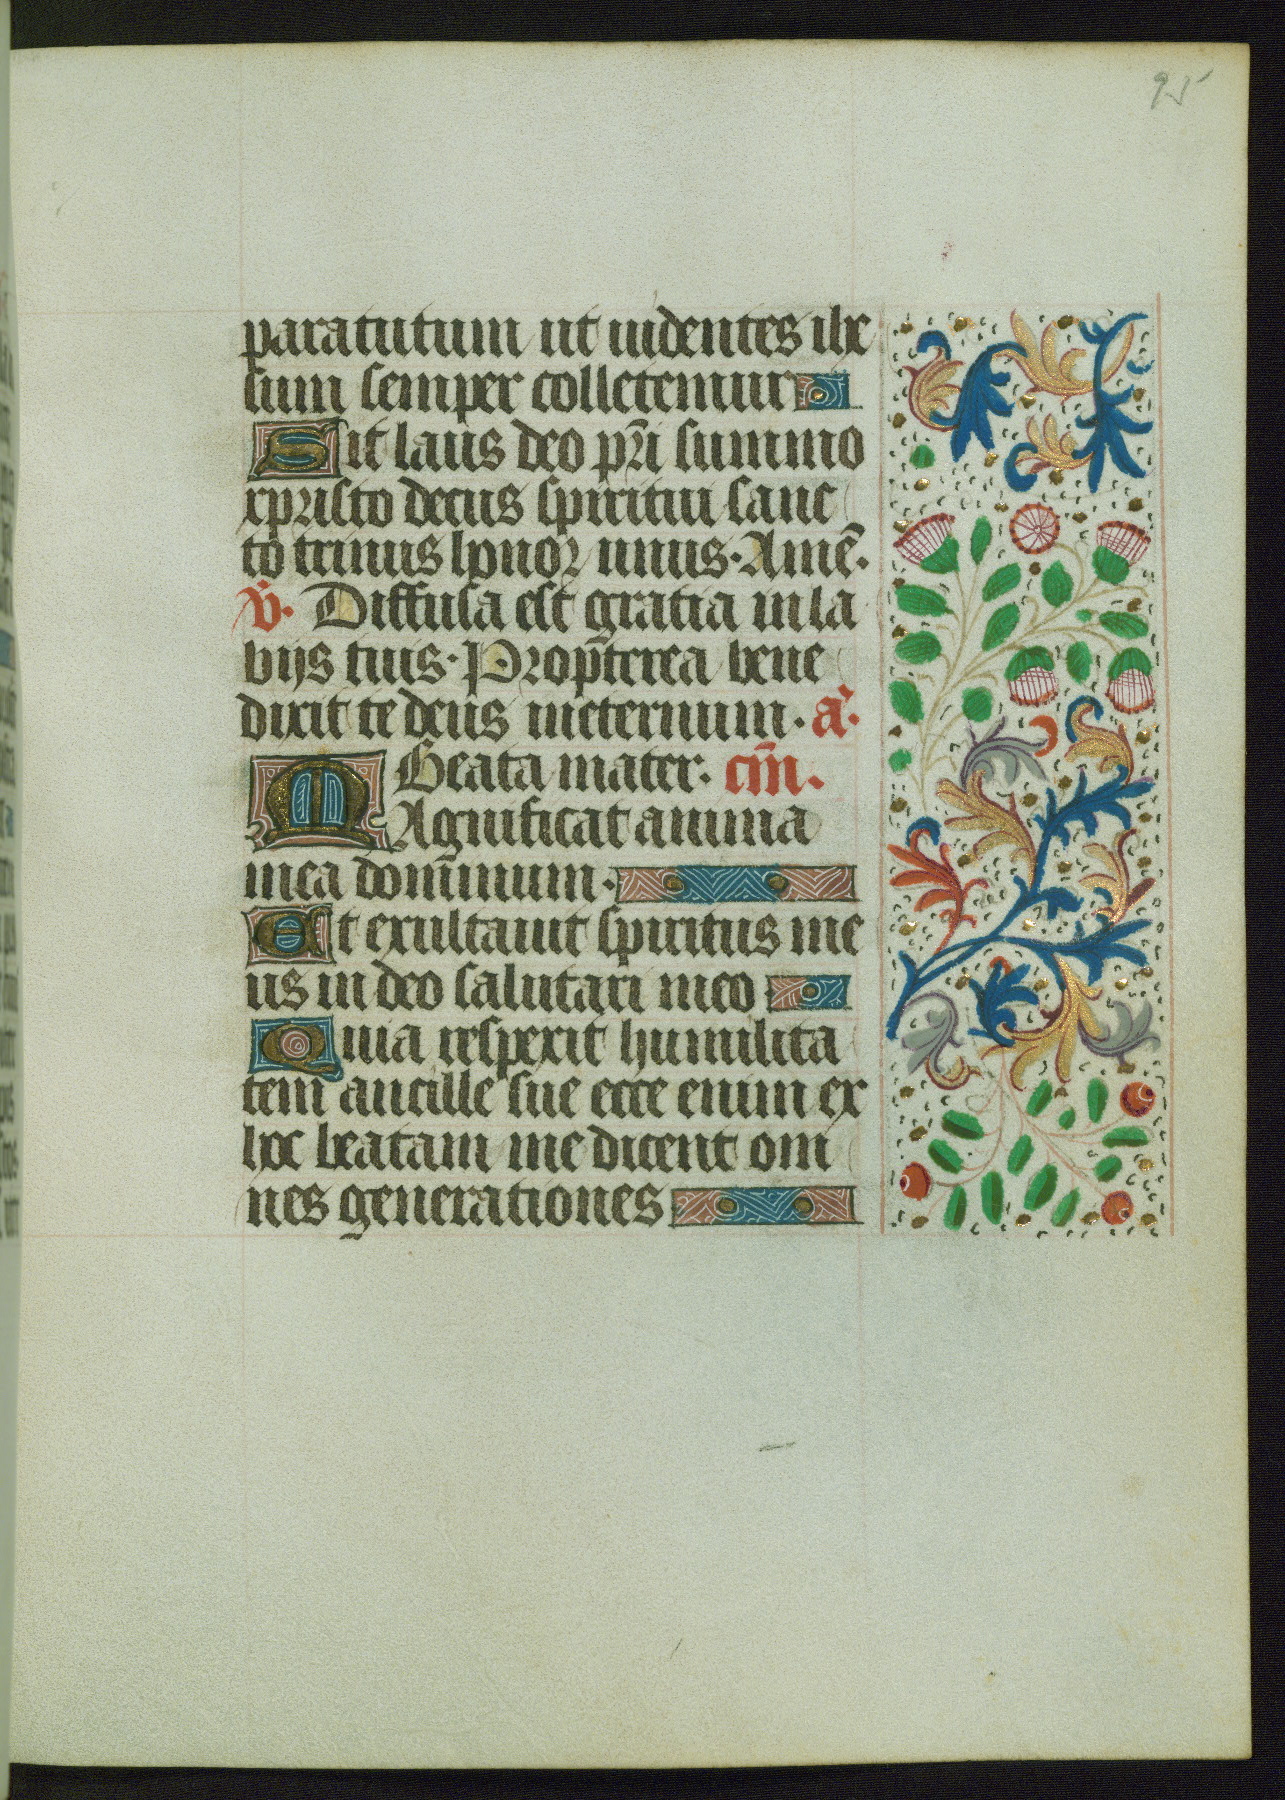 95
para tutum ut uidentes ihe
sum semper colletemur
Sit laus deo pr̄i summo
xpristo decus spiritui sanc
to trinus honor unus. Amē.
v̄. Diffusa est gratia in la
bijs tuis. Prop̄terea bene
dixit te deus ineternum. a.
Beata mater. cm̄.
Magnificat anima
mea dom̄inum.
Et exultauit spiritus me
us in deo salutari meo
Quia respexit humilita
tem ancille sue ecce enim ex
hoc beatam me dicent om
nes generationes